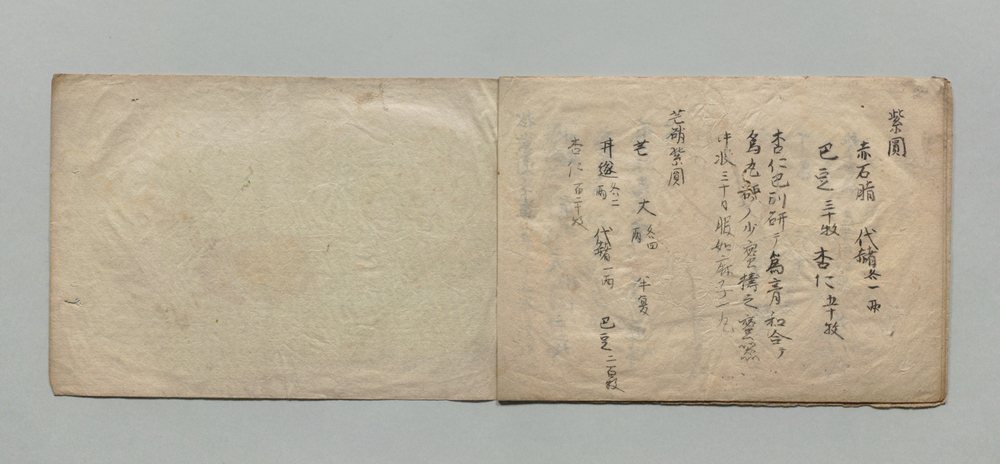 紫圓
赤石脂 代赭各一兩
巴豆三十枚 杏仁五十枚
杏仁巴別研テ為膏和合ノ
為丸 少蜜擣之蜜器
中收三十日服如麻子一丸
芒硝紫圓
芒 大各四兩 半夏
井遂各二兩 代赭一兩 巴豆二百枚
杏仁百二十枚